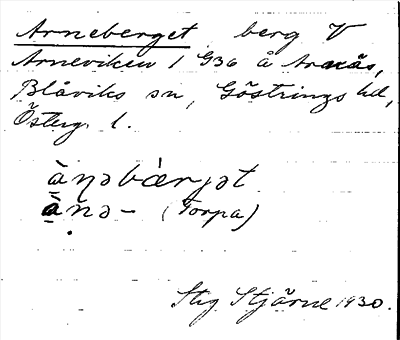 Arneberget berg V
Arneviken 1 G36 å Arnäs,
Blåviks sn, Göstrings hd,
Österg. l.
àṇəbæ̀rjət
ànə- (Torpa)
Stig Stjärne 1930.